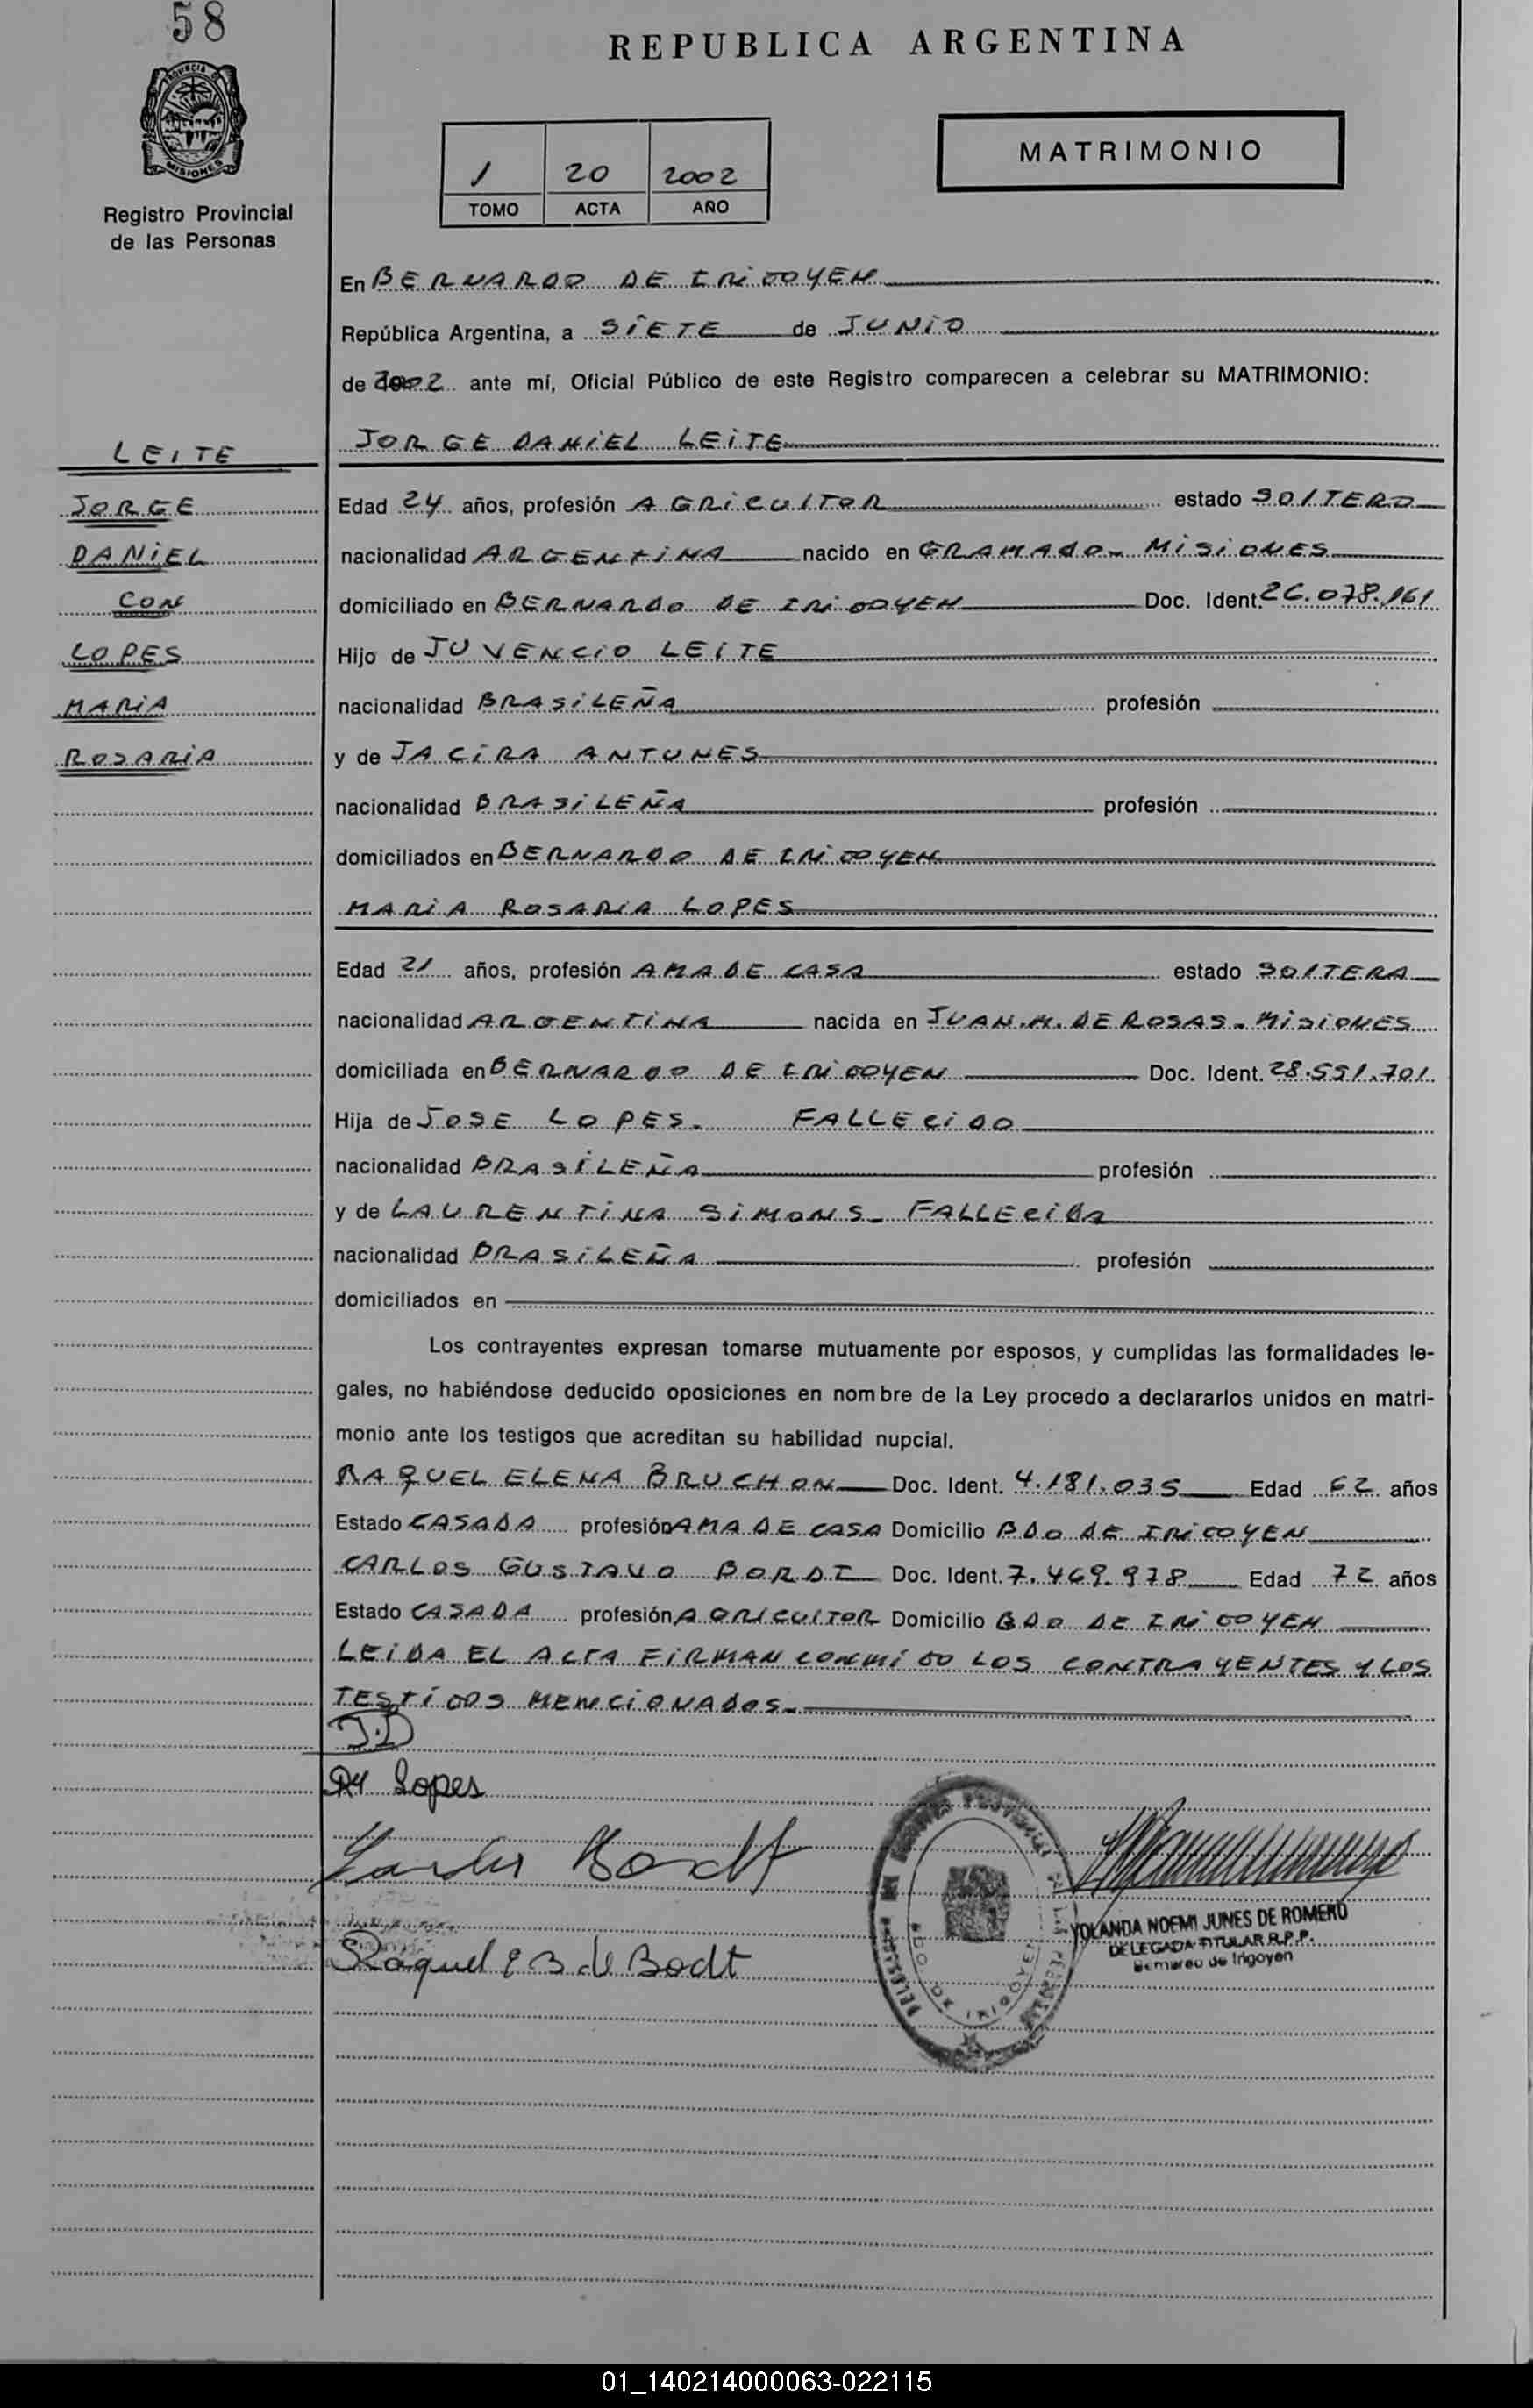 58
REPUBLICA ARGENTINA
PROVINCIA DE MISIONES
Registro Provincial
de las Personas
1 20 2002
TOMO ACTA AÑO
MATRIMONIO
En BERNARDO DE IRIGOYEN
República Argentina, a SIETE de JUNIO
de 2002 ante mí, Oficial Público de este Registro comparecen a celebrar su MATRIMONIO:
LEITE
JORGE
DANIEL
CON
LOPES
MARIA
ROSARIA
JORGE DANIEL LEITE
Edad 24 años, profesión AGRICULTOR estado SOLTERO
nacionalidad ARGENTINA nacido en GRAMADO- MISIONES
domiciliado en BERNARDO DE IRIGOYEN Doc. Ident. 26.078.161
Hijo de JUVENCIO LEITE
nacionalidad BRASILEÑA profesión
y de JACIRA ANTUNES
nacionalidad BRASILEÑA profesión
domiciliados en BERNARDO DE IRIGOYEN
MARIA ROSARIA LOPES
Edad 21 años, profesión AMA DE CASA estado SOLTERA
nacionalidad ARGENTINA nacida en JUAN.M.DE ROSAS- MISIONES
domiciliada en BERNARDO DE IRIGOYEN Doc. Ident. 28.551.701
Hija de JOSE LOPES- FALLECIDO
nacionalidad BRASILEÑA profesión
y de LAURENTINA SIMONS- FALLECIDA
nacionalidad BRASILEÑA profesión
domiciliados en
Los contrayentes expresan tomarse mutuamente por esposos, y cumplidas las formalidades le-
gales, no habiéndose deducido oposiciones en nombre de la Ley procedo a declararlos unidos en matri-
monio ante los testigos que acreditan su habilidad nupcial.
RAQUEL ELENA BRUCHON Doc. Ident. 4.181.035 Edad 62 años
Estado CASADA profesión AMA DE CASA Domicilio BDO DE IRIGOYEN
CARLOS GUSTAVO BORDT Doc. Ident. 7.469.978 Edad 72 años
Estado CASADA profesión AGRICULTOR Domicilio BDO DE IRIGOYEN
LEIDA EL ACTA FIRMAN CONMIGO LOS CONTRAYENTES Y LOS
TESTIGOS MENCIONADOS-
J.D
Lopes
Raquel E B de Bodt
BDO DE IRIGOYEN
YOLANDA NOEMI JUNES DE ROMERO
DELEGADA TITULAR R.P.P.
Bernardo de Irigoyen
01_140214000063-022115